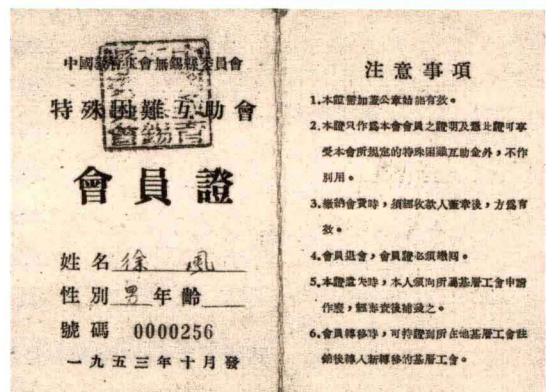 中國教育工會無錫縣委員會
特殊困難互助會
會員證
姓名 徐 風
性別 男 年齡
號碼 0000256
一九五三年十月發
注意事項
1.本證需加蓋公章始能有效。
2.本證只作為本會會員之證明及憑此證可享
受本會所規定的特殊困難互助金外,不作
別用。
3.繳納會費時,須經收款人蓋章後,方為有
效。
4.會員退會,會員證必須繳回。
5.本證遺失時,本人須向所屬基層工會申請
作廢,經審查後補發之。
6.會員轉移時,可持證到所在地基層工會註
銷後轉入新轉移的基層工會。